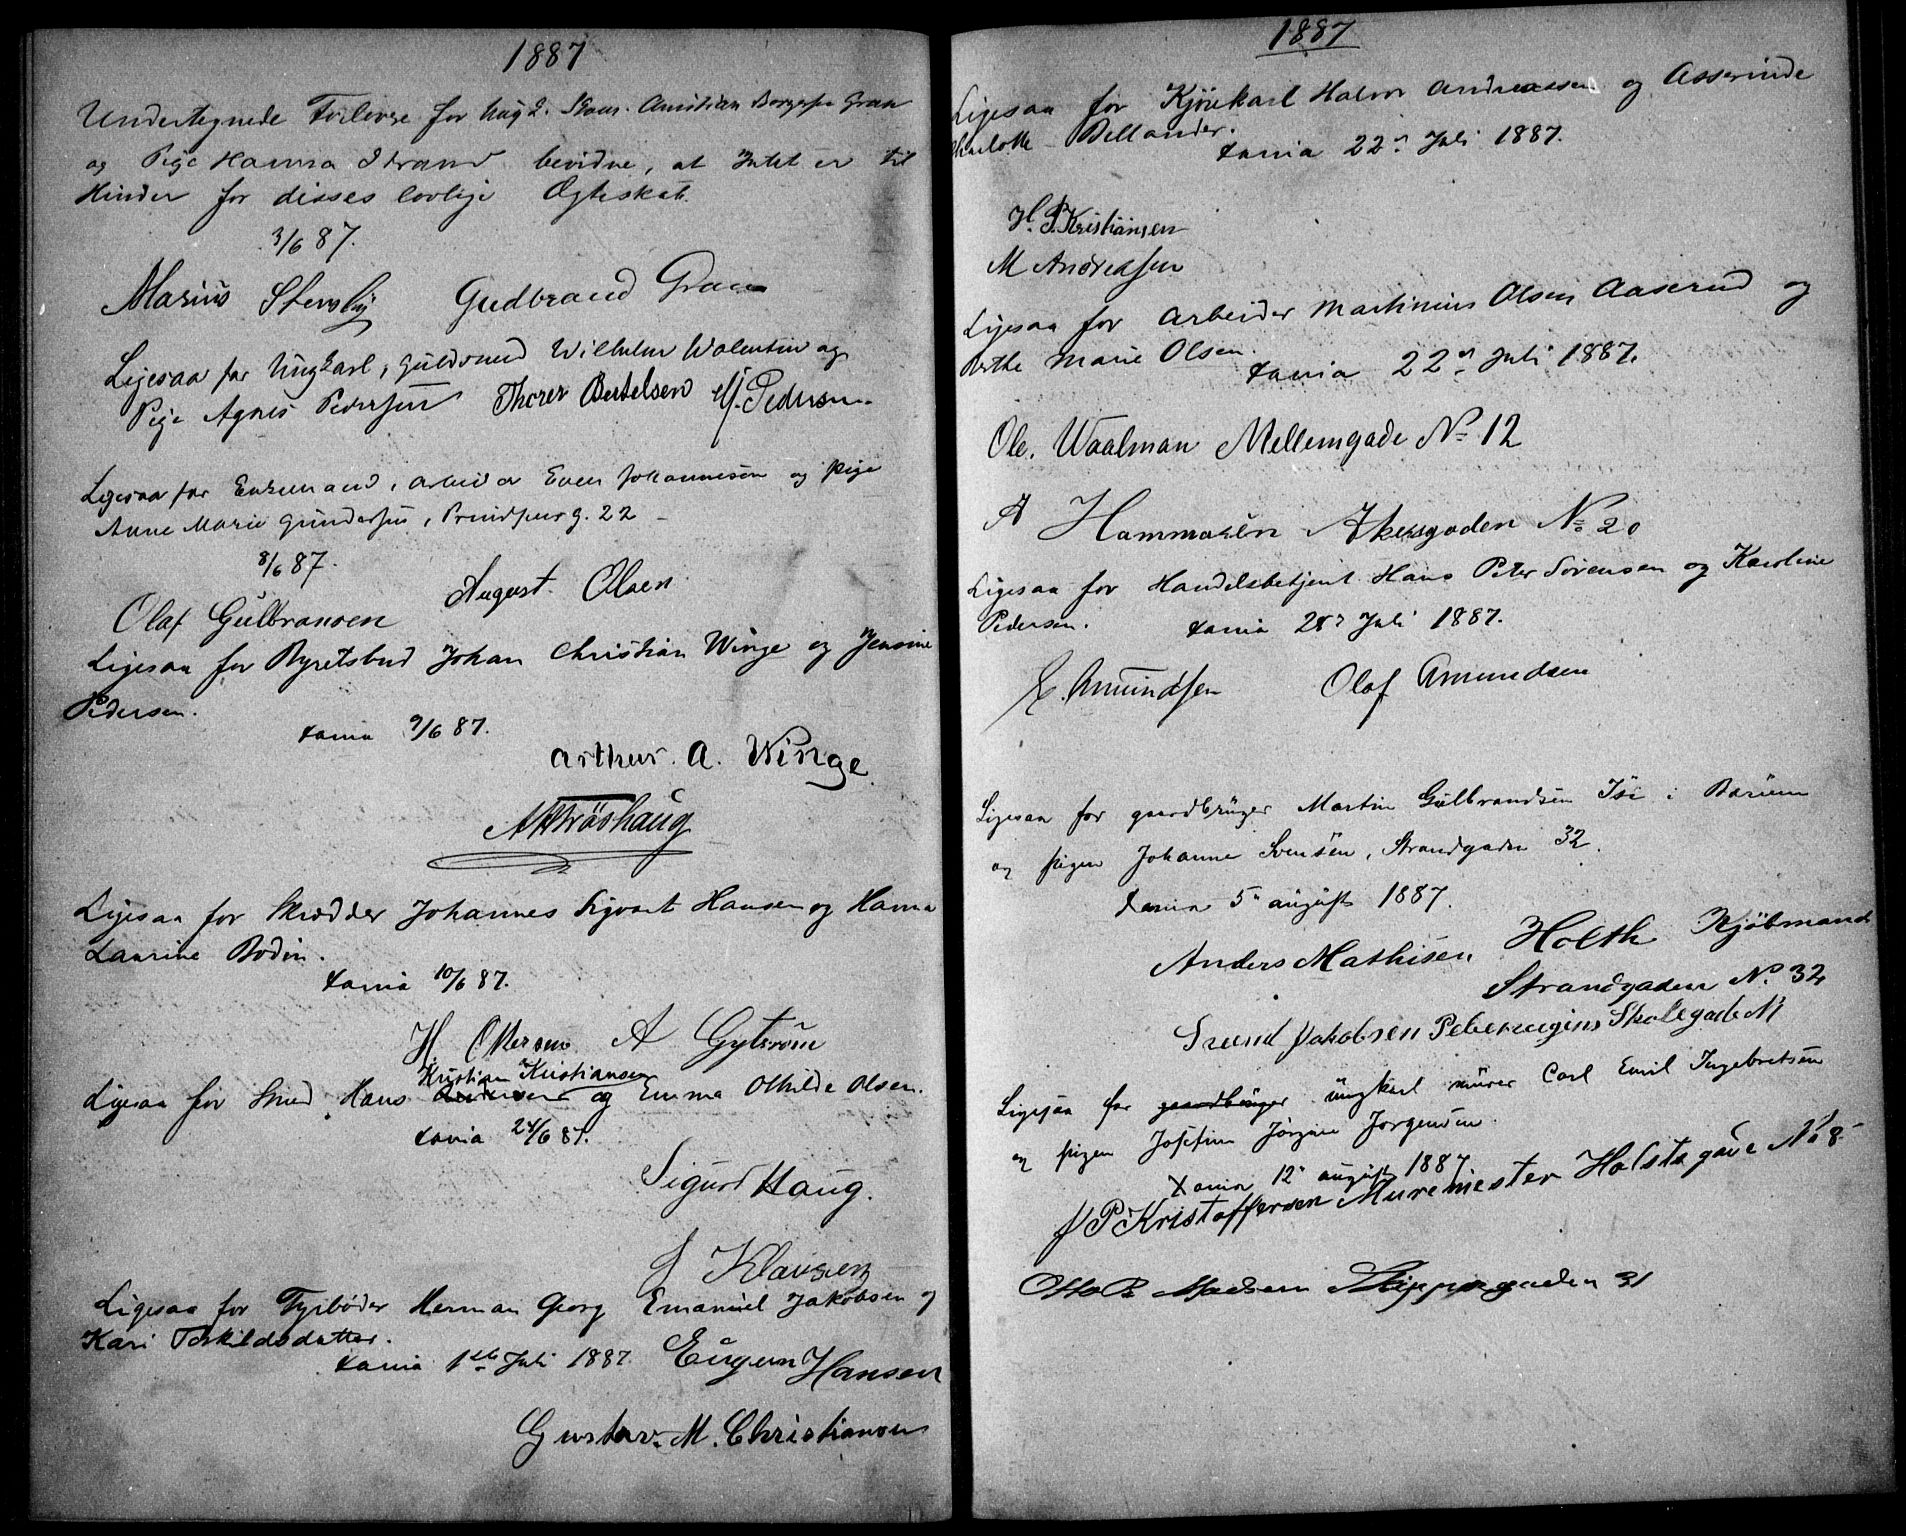 1887
Undertegnede Forlovere for Ungk. Christian Gran
og Pige Hanna Strand bevidne, at Intet er til
Hinder for disses lovlige Ægteskab.
3/6 87.
Marius Stensby Gudbrand Gran
Ligesaa for Ungkarl, Guldsmed Wilhelm Walentin og
Pige Agnes Pedersen Thorer Bertelsen M. Pedersen
Ligesaa for Enkemand, arbeider Even Johannesen og pige
Anne Marie Gundersen, Prindsensg. 22 –
8/6 87.
August Olsen
Olaf Gulbransen
Ligesaa for Byretsbud Johan Christian Winge og Jensine
Pedersen.
Xania 9/6 87.
Arthur. A. Winge.
Ligesaa for Skrædder Johannes Sigvart Hansen og Hanna
Laurine Bodin.
Xania 10/6 87.
H A
Kristian Kristiansen
Ligesaa for Smed Hans Andersen og Emma Othilde Olsen.
Xania 24/6 87.
Sigurd Haug.
J Klausen
Ligesaa for Fyrbøder Herman Georg Emanuel Jakobsen og
Kari Torkildsdatter.
Xania 1ste Juli 1887. Eugen Hansen
Gustav. M. Christiansen
1887
Ligesaa for Kjørekarl Halvor Andreassen og Asserinde
Charlotte Bellander.
Xania 22n Juli 1887.
H. P. Kristiansen
M Andresen
Ligesaa for Arbeider Martinius Olsen Aaserud og
Berthe Marie Olsen.
Xania 22n Juli 1887.
Ole. Waalman Mellemgade No 12
A Hammarén Akersgaden No 20
Ligesaa for Handelsbetjent Hans Peter Sørensen og Karoline
Pedersen.
Xania 28n Juli 1887.
E. Amundsen Olaf Amundsen
Ligesaa for gaardbruger Martin Gulbrandsen Isi i Bærum
og pigen Johanne Svensen, Strandgaden 32.
Xania 5n august 1887.
Anders Mathisen Holth Kjøbmand
Strandgaden No. 32
Svend Jakobsen Skolegade
Ligesaa for gaardbruger ungkarl murer Carl Emil Ingebretsen
og pigen Josefine Jørgine Jørgensen.
Xania 12n august 1887
J P Kristoffersen Muremester Holstsgade No 8
Otto B Madsen Skippergaden 31